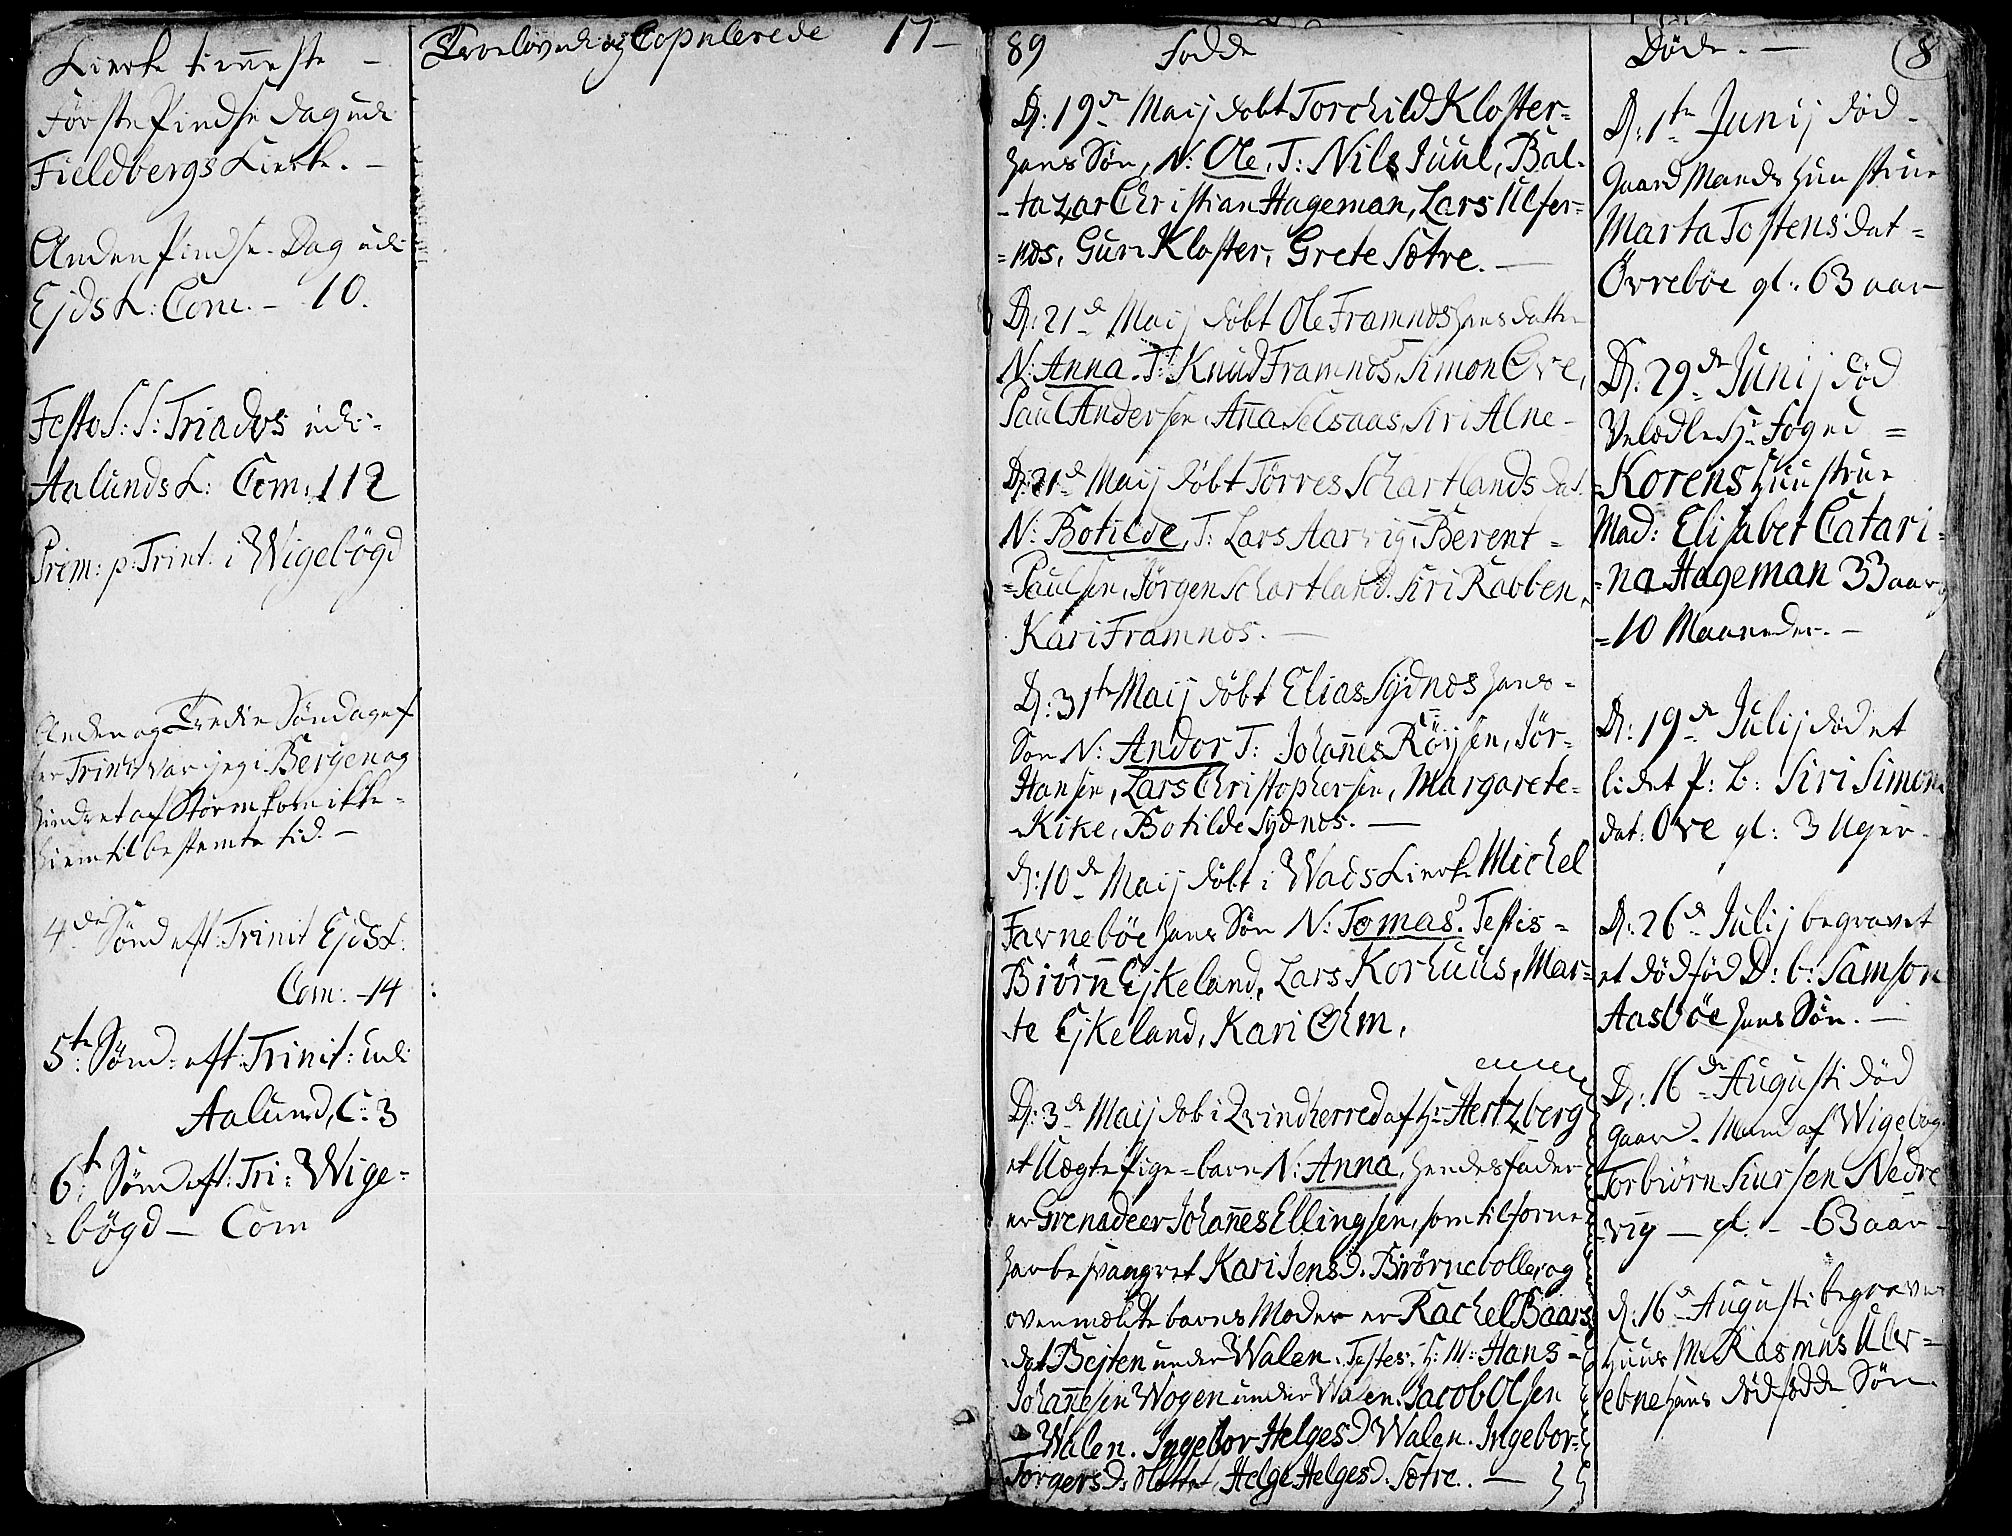 Kierke tienneste -
Første Pindse dag udi
Fieldbergs Kierke. -
Anden Pindse-Dag udi
Ejds K: Com. - 10.
Festo S: S: Triados udi-
Aalunds K: Com: 112
Prim: p: Trint: i Wigebögd
Anden og Tredie Söndag ef
ter Trint var jeg i Bergen og
hindret af Storm kom ikke-
hiem til bestemte tid. -
4de Sönd eft: Trinit Ejds K:
Com: - 14
5te Sönd: eft: Trinit: udi
Aalund, C: 3
6te Sönd eft: Tri: Wige-
bögd - Com
Troelovede og Copulerede 17-
89 Födde
D: 19de Maij döbt Torchild Kloster=
hans Sön, N: Ole, T: Nils Juul, Bal-
-tazar Christian Hageman, Lars Ulfer=
=nøs, Guri Kloster, Grete Sætre. -
D: 21de Maij döbt Ole Framnøs hans datter
N: Anna. T: Knud Framnøs, Simon Ore,
Paul Andersen, Anna Selsaas, Siri Alne-
D: 21de Maij döbt Törres Schartlands dat.
N: Botilde, T: Lars Aarvig, Berent=
=Paulsen, Jörgen Schartland. Siri Rabben,
Kari Framnøs. -
D: 31te Maij döbt Elias Sydnøs hans=
Sön N: Andor T: Johannes Röysen, Jör-
Hansen, Lars Christophersen, Margarete=
-Kike, Botilde Sydnøs. -
d: 10de Maij döbt i Wads Kierke Michel
Farneböe hans Sön N: Tomas. Testis=
Biörn Ejkeland, Lars Korhuus, Mar=
te Ejkeland, Kari Ohm,
D: 3de Maij döb i Qvindherred af Hr Hertzberg
et Uægte Pige-barn N: Anna, hendes fader
er Grenadeer Johannes Ellingsen, som tilforne
har besvangret Kari Jensd. Biörnebolle, og
ovenmeldte barns Moder er Rachel Baars
dat Bejten under Walen. Testes: H: M: Hans=
Johannesen Wogen under Walen. Jacob Olsen
Walen. Ingebor Helgesd Walen. Ingebor=
Torgersd: Helge Helgesd. Sætre. -
Döde. - 8
D: 1te Junij död-
Gaard Mands Huustrue
Marta Tostens dat=
Övreböe gl: 63 aar
D: 29de Junij död
Velædle Hr Foged =
=Korens Huustrue
Mad: Elisabet Catari=
=na Hageman 33 aar og
=10 Maaneder. -
D: 19de Julij död et
lidet P: B: Siri Simons
dat: Ore gl: 3 Uger-
D: 26de Julij begravet
et dödföd D: b: Samson
Aasböe hans Sön. -
D: 16de Augusti död
Gaard-Mand af Wigebög
Torbiörn Siursen Nedre
=vig - gl: - 63 aar-
d: 16de Augusti begravet
Huus M: Rasmus Ulv=
ebne hans dödfödde Sön-